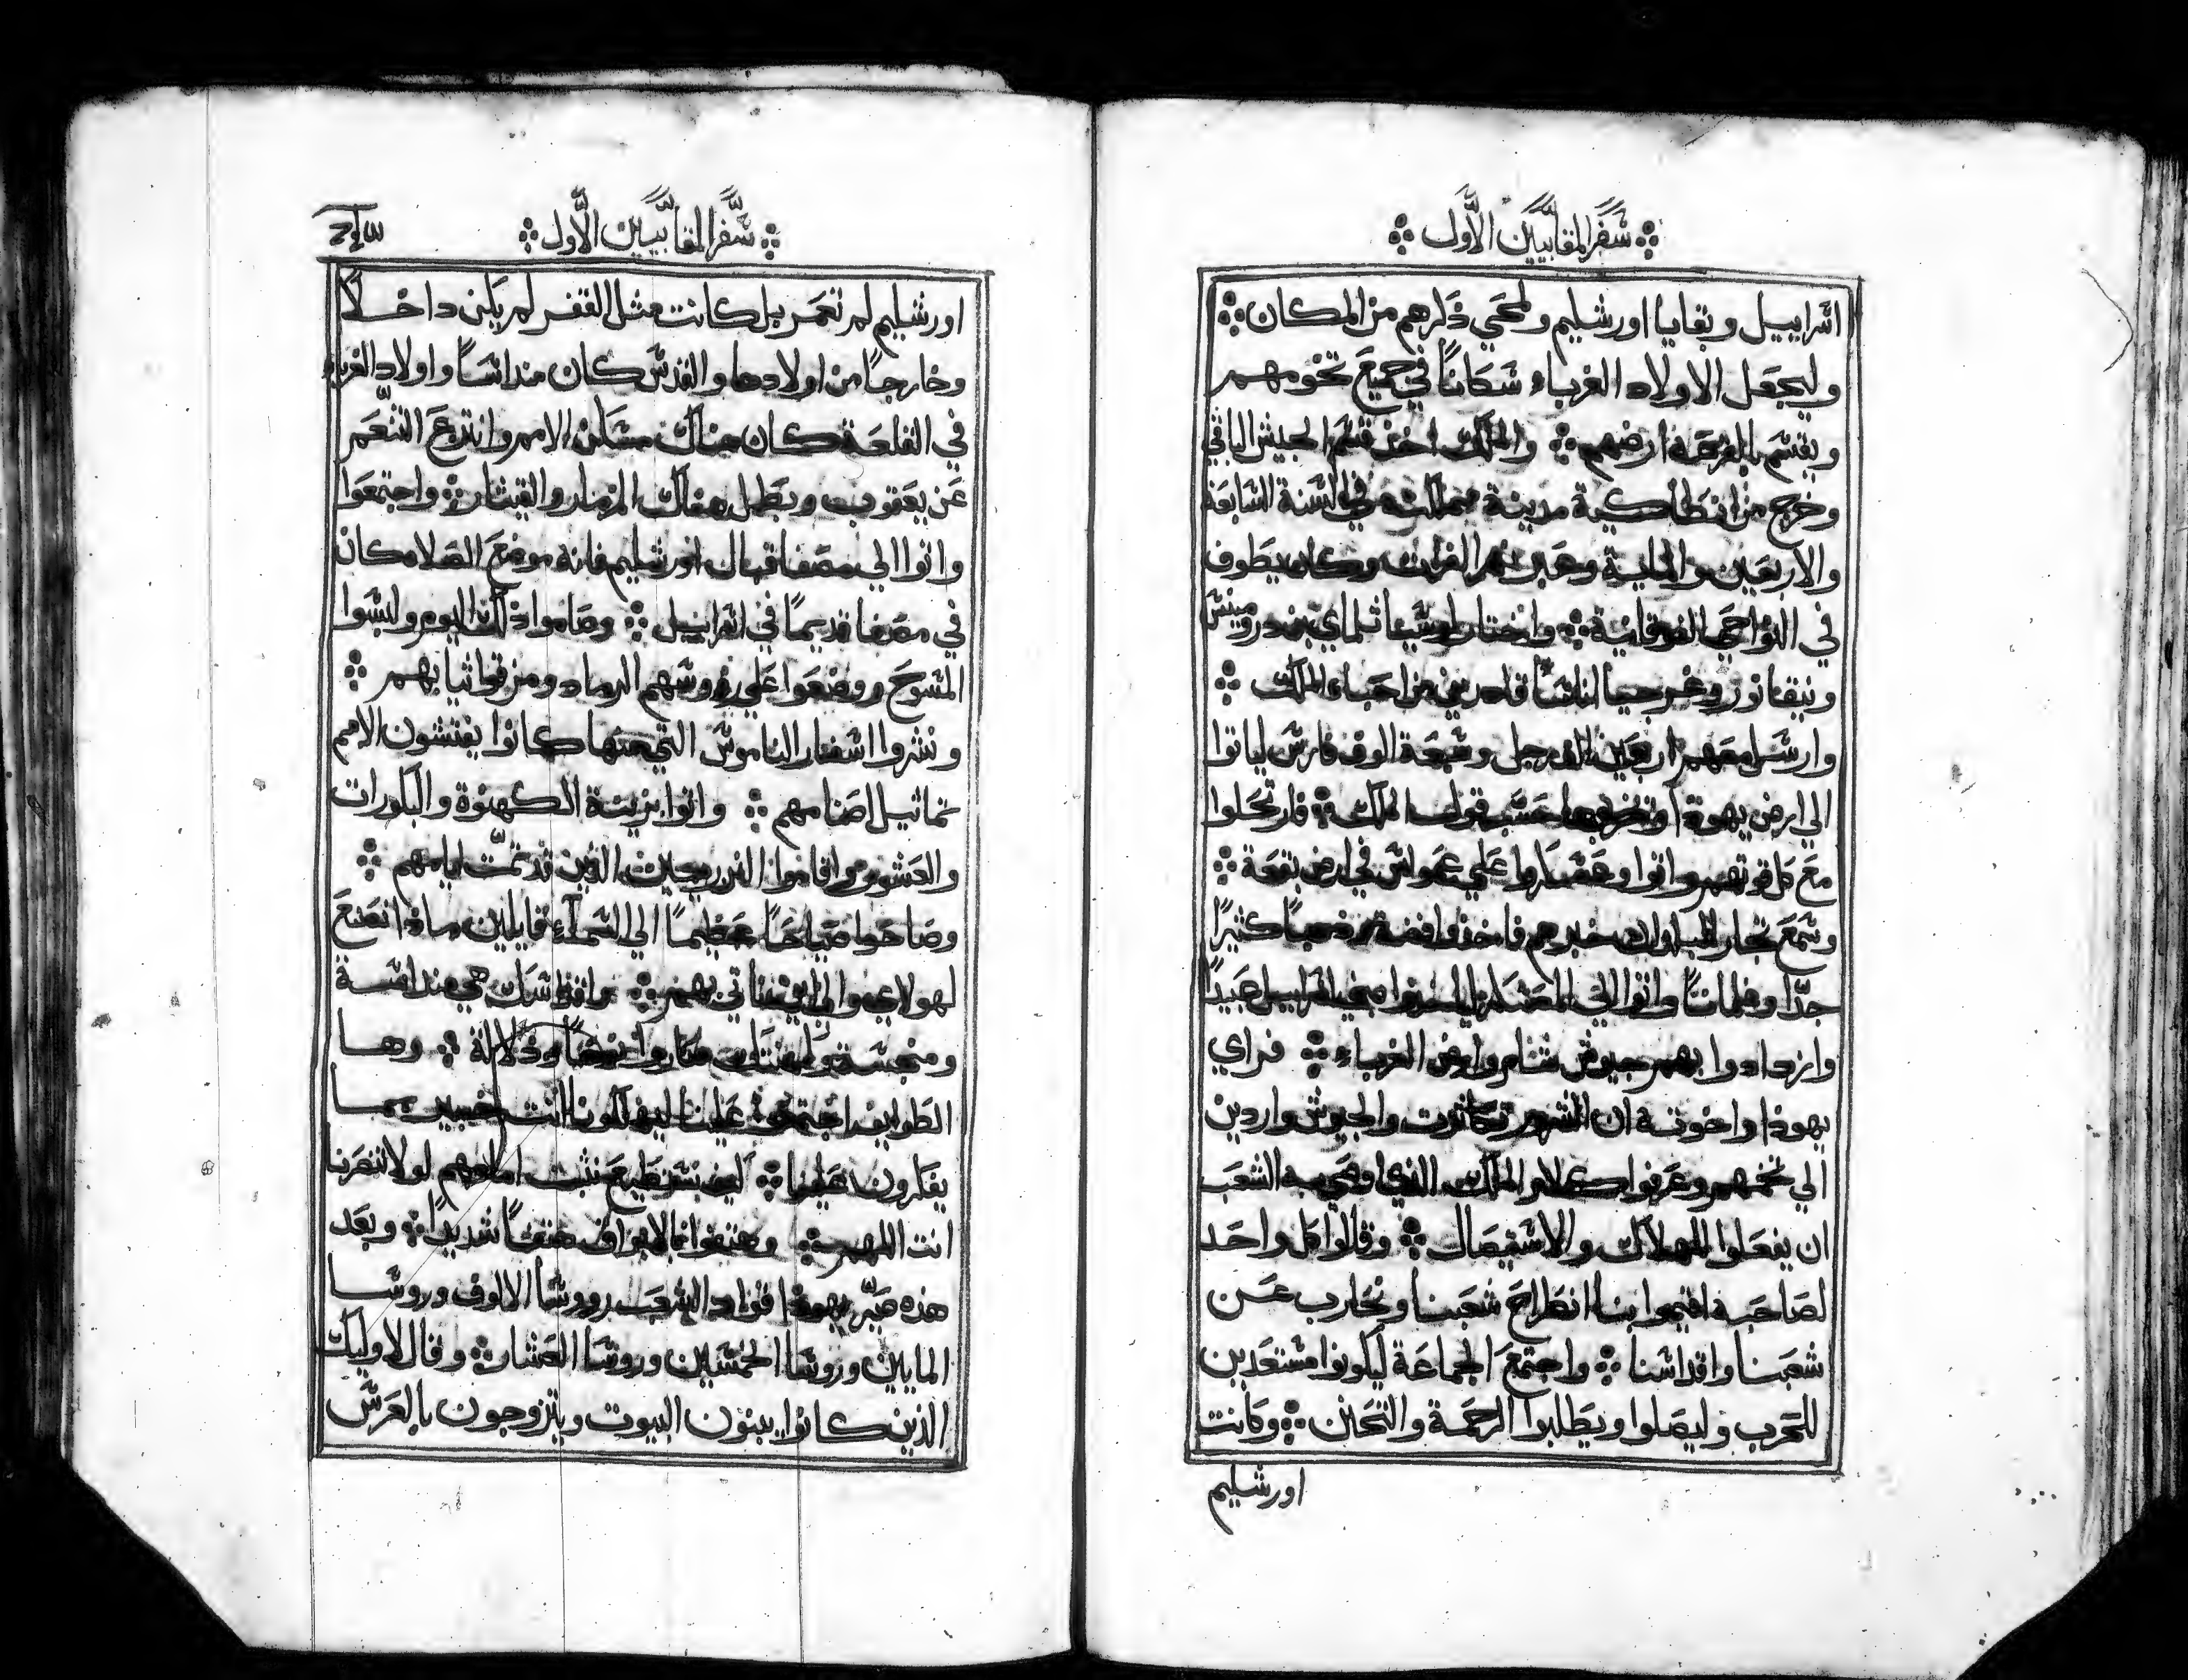 سفر المقابيين الاول
اسراييل وبقايا اورشليم ولمحي ذكرهم من المكان
وليجعل الاولاد الغرباء سكاناً في جميع تخومهم
ويقسم بالقرعة ارضهم والملك اخذ الجيش الباقي
وخرج من انطاكية مدينة مملكته في السنة السابعة
والاربعين والماية وعبر نهر الفرات وكان يطوف
في النواحي الفوقانية واختار لوسيا ثلماي بن درومينس
ونيقانور وغرجيا اناساً قادرين من احباء الملك
وارسل معهم اربعين الف رجل وسبعة الوف فارس لياتوا
الي ارض يهوذا حسب قول الملك فارتحلوا
مع كل قوتهم واتوا علي عمواس في ارض بقعة
وسمع تجار البلدان خبرهم فاخذوا فضة وذهباً كثيراً
جدّا وغلماناً واتوا الي المعسكر لياخذوا بني اسراييل عبيداً
وازدادوا بهم جيوش شام وارض الغرباء فراي
يهوذا واخوته ان الشرور تكاثرت والجيوش واردين
الي تخمهم وعرفوا كلام الملك الذي اوصي به الشعب
ان يفعلوا الهلاك والاستيصال وقالوا كل واحد
لصاحبه اقيموا بنا انطراح شعبنا ونحارب عن
شعبنا واقداسنا واجتمع الجماعة ليكونوا مستعدين
للحرب وليصلوا ويطلبوا الرحمة والتحنن وكانت
اورشليم
سفر المقابيين الاول
اورشليم لم تعمر بل كانت مثل القفر لم يكن داخلاً
وخارجاً من اولادها والقدس كان منداساً واولاد الغرباء
في القلعة كان هناك مسكن الامم وانتزع التنعم
عن يعقوب وبطل هناك المزمار والقيثار واجتمعوا
واتوا الي مصفا قبال اورشليم فانه موضع الصلا كان
في مصفا قديماً في اسراييل وصاموا ذلك اليوم ولبسوا
المسوح ووضعوا علي روسهم الرماد ومزقوا ثيابهم
ونشروا اسفار الناموس التي منها كانوا يفتشون الامم
تماثيل اصنامهم واتوا بزينة الكهنوة والبكورات
والعشور واقاموا الذين قد تمّت ايامهم
وصاحوا صياحاً عظيماً الي السماء قايلين ماذا نصنع
لهولاي والي اين ناتي بهم واقداسك هي منداسة
ومنجسة وكهنتك صاروا وذلالة وها
الطوايف اجتمعوا علينا ليهلكونا انت خبير بما
يفكرون علينا كيف نستطيع نثبت امامهم لولا تنصرنا
انت اللهم وهتفوا بالابواق هتفاً شديداً وبعد
هذه صيّر يهوذا قواد الشعب وروسا الالوف وروسا
المايين وروسا الخمسين وروسا العشار وقال لاوليك
الذين كانوا يبنون البيوت ويتزوجون بالعرس